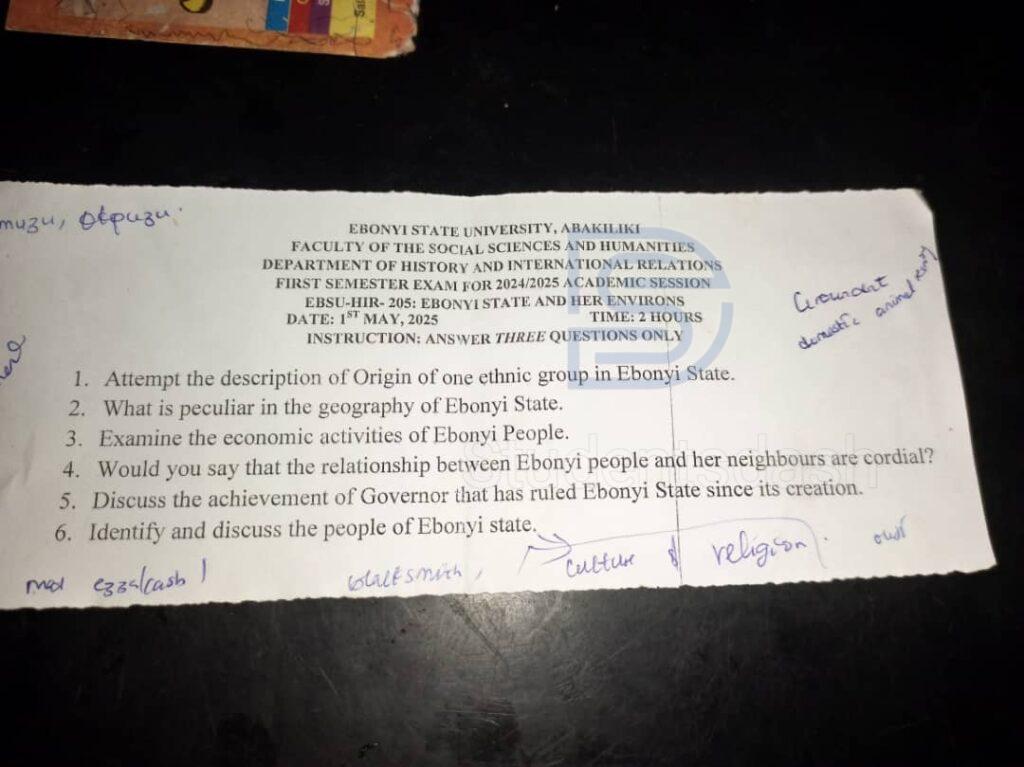 EBONYI STATE UNIVERSITY, ABAKILIKI
FACULTY OF THE SOCIAL SCIENCES AND HUMANITIES
DEPARTMENT OF HISTORY AND INTERNATIONAL RELATIONS
FIRST SEMESTER EXAM FOR 2024/2025 ACADEMIC SESSION
EBSU-HIR- 205: EBONYI STATE AND HER ENVIRONS
DATE: 1ST MAY, 2025 TIME: 2 HOURS
INSTRUCTION: ANSWER THREE QUESTIONS ONLY
domestic animal
1. Attempt the description of Origin of one ethnic group in Ebonyi State.
2. What is peculiar in the geography of Ebonyi State.
3. Examine the economic activities of Ebonyi People.
Studentsdash
4. Would you say that the relationship between Ebonyi people and her neighbours are cordial?
5. Discuss the achievement of Governor that has ruled Ebonyi State since its creation.
6. Identify and discuss the people of Ebonyi state.
culture & religion